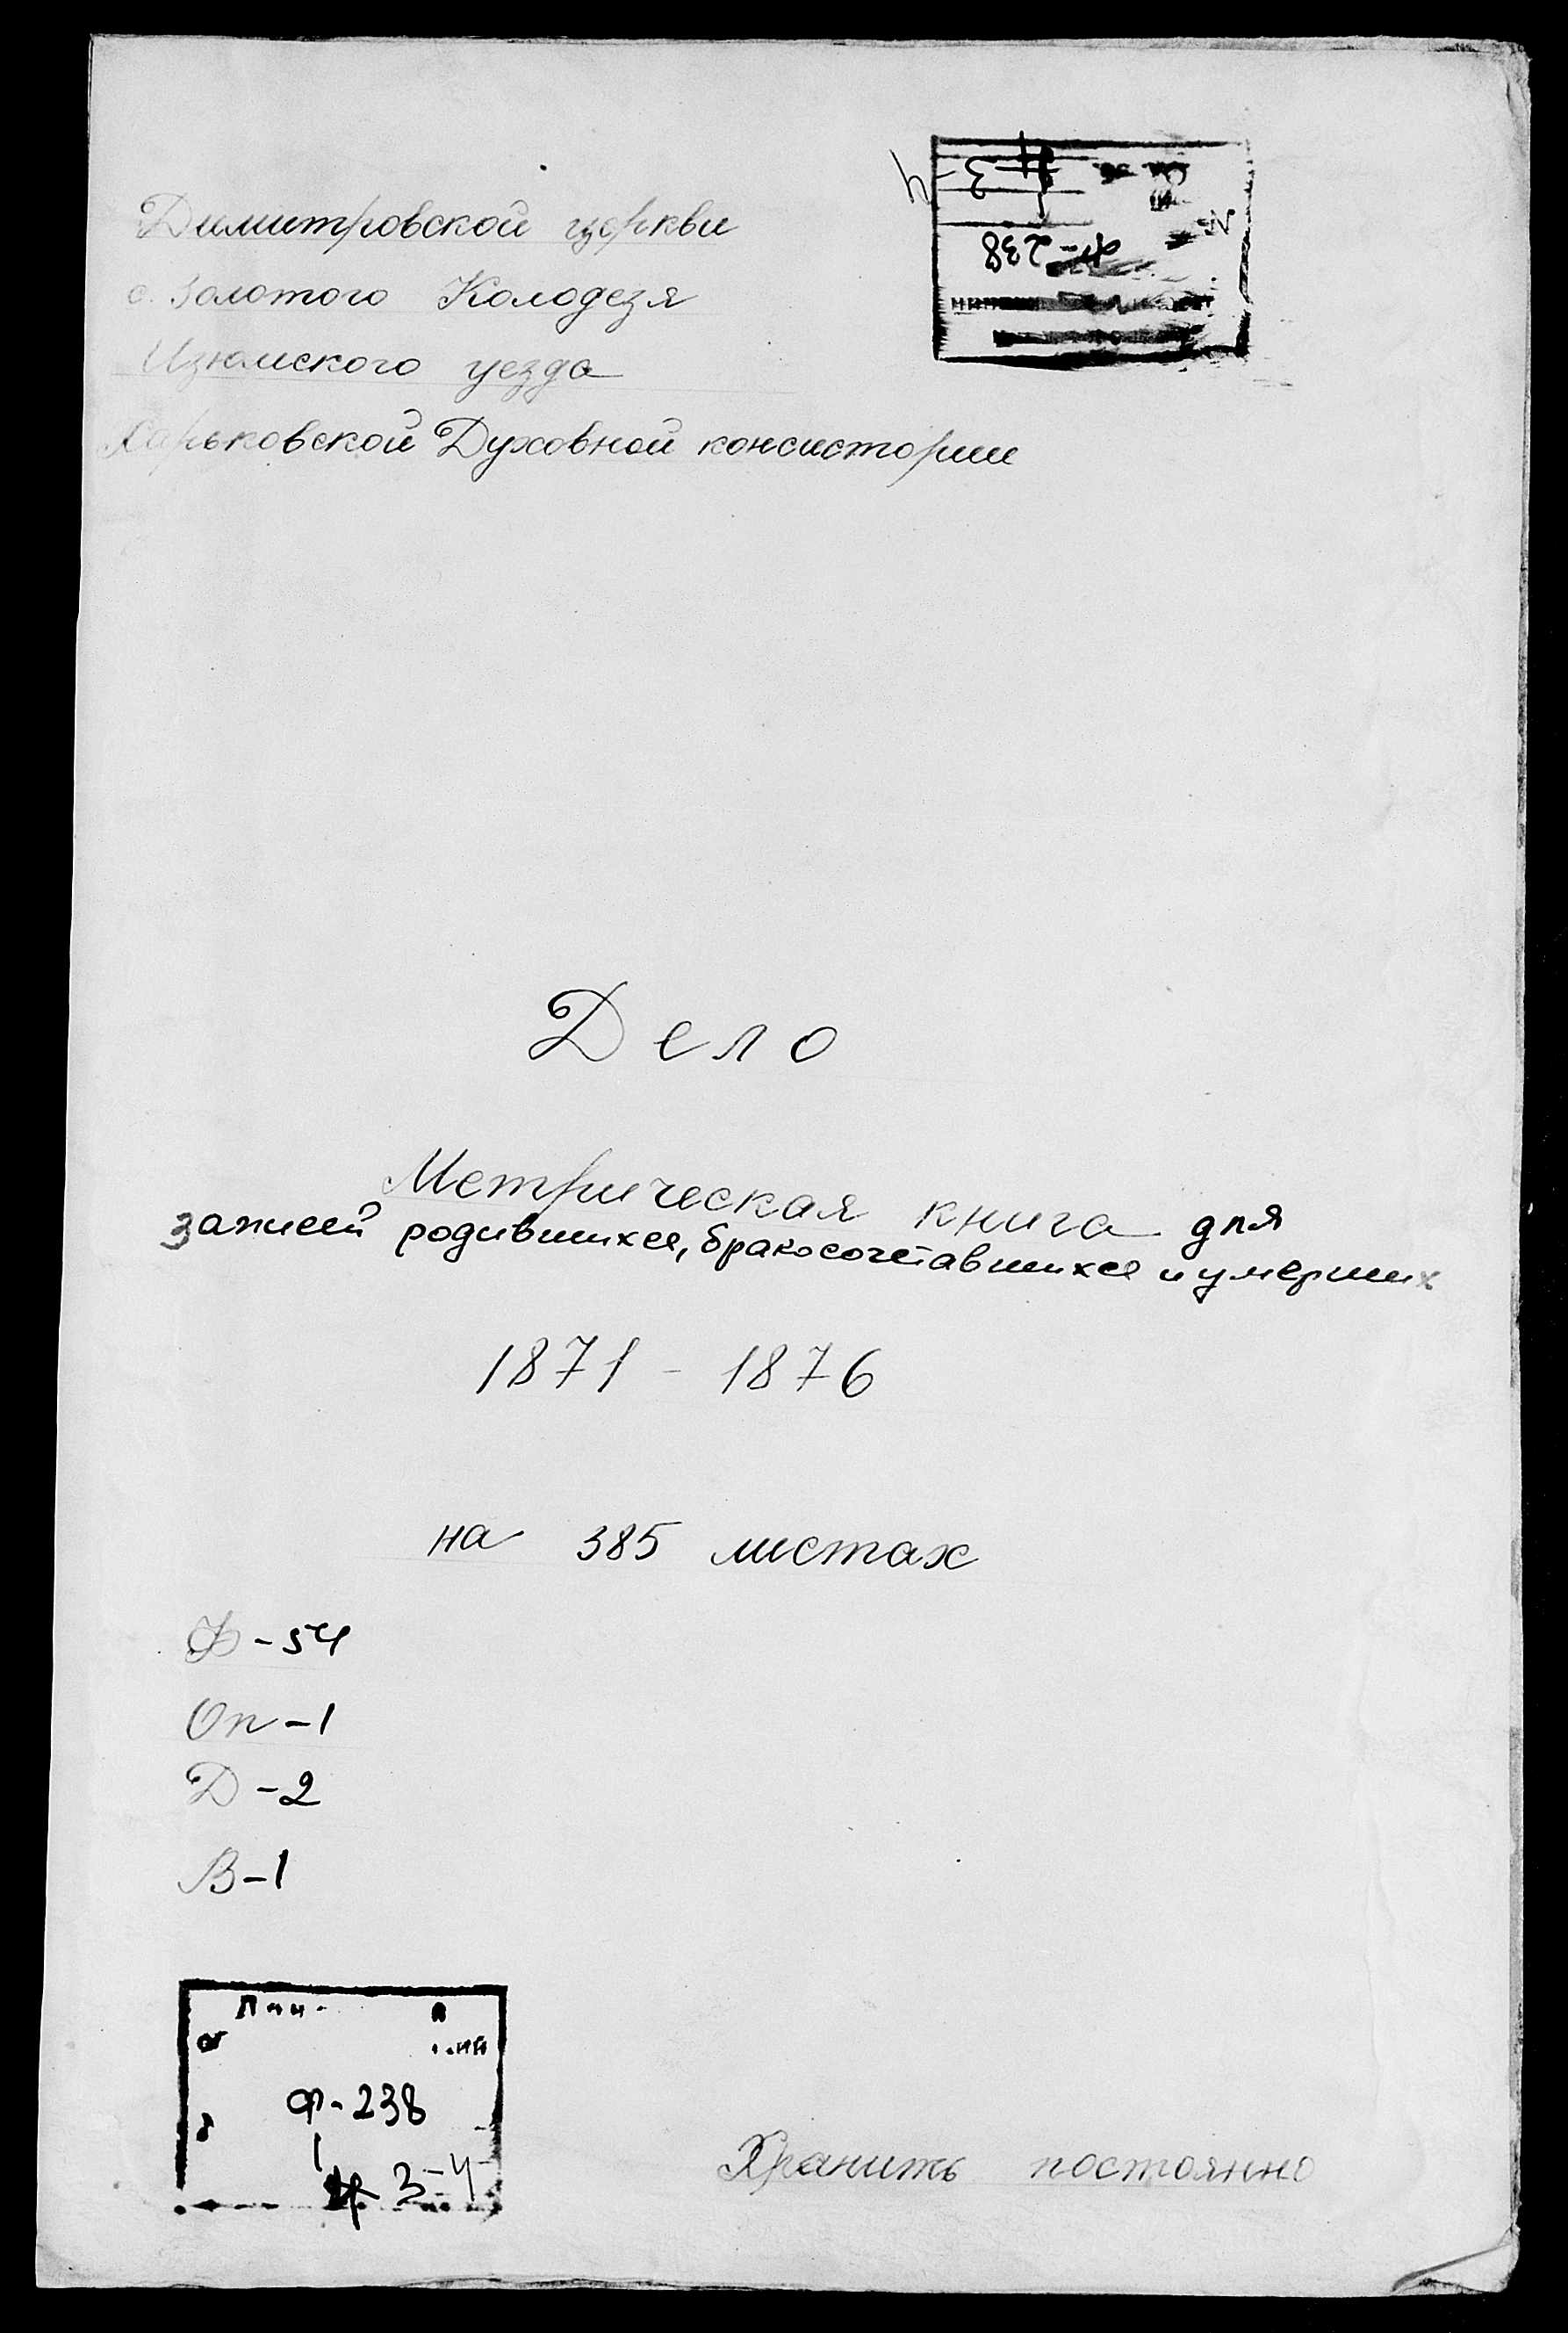 Димитровской церкви
с. Золотого Колодезя
Изюмского уезда
Харьковской Духовной консистории
ф-238
3-4
Дело
Метрическая книга для
записей родившихся, бракосочетавшихся и умерших
1871 - 1876
на 385 листах
Ф - 54
Оп - 1
Д - 2
В - 1
ф-238
1
3-4
Хранить постоянно